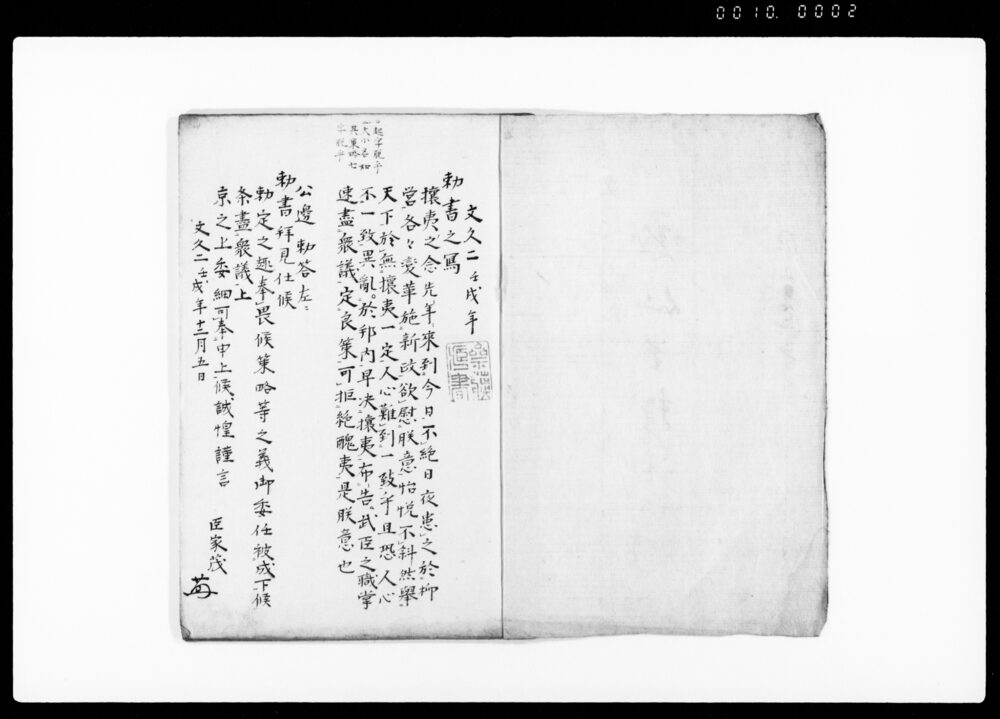 0010. 0002
文久二壬戌年
勅書之写
攘夷之念先年来到今日不絶日夜患之於柳
営各々変革施新政欲慰朕意怡悦不斜然挙
天下於無攘夷一定人心難到一致乎且恐人心
不一致異乱於邦内早決攘夷布告武臣之職掌
速尽衆議定良策可拒絶醜夷是朕意也
公邊勅答左ニ
勅書拝見仕候
勅定之趣奉畏候策略等之義御委任被成下候
条尽衆議上
京之上委細可奉申上候誠惶謹言
文久二壬戌年十二月五日
臣家茂